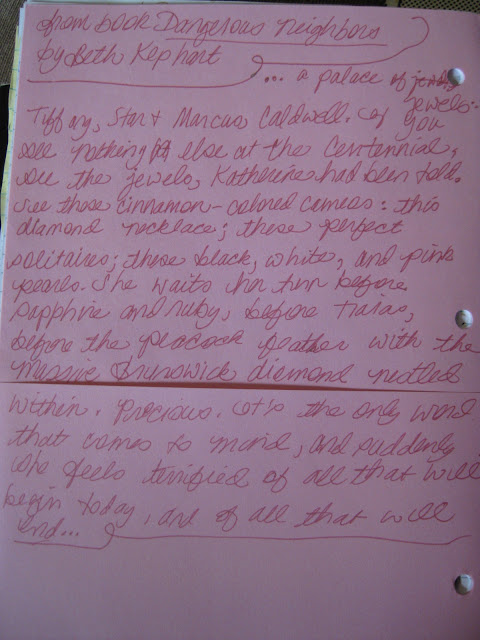 from book Dangerous Neighbors
by Beth Kephart
... a palace of jewels..
Tiffany, Starr & Marcus, Caldwell. If you
see nothing else at the Centennial,
see the jewels, Katherine had been told.
See those cinnamon-colored cameos: this
diamond necklace; these perfect
solitaires; these black, white, and pink
pearls. She waits her turn before
sapphire and ruby, before tiaras,
before the peacock feather with the
massive Brunswick diamond nestled
within. Precious. It's the only word
that comes to mind, and suddenly
she feels terrified of all that will
begin today, and of all that will
end...